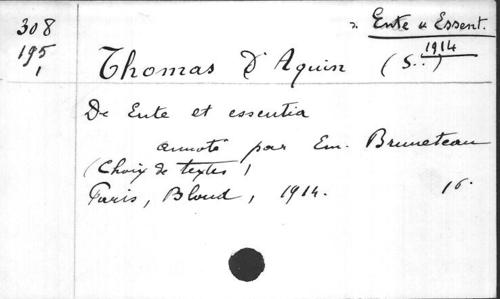 308
195
1
2. Ente u Essent.
1914
Thomas D'Aquin (S..)
De Ente et essentia
annoté par Em. Bruneteau
(Choix de textes)
Paris, Bloud, 1914. 16.